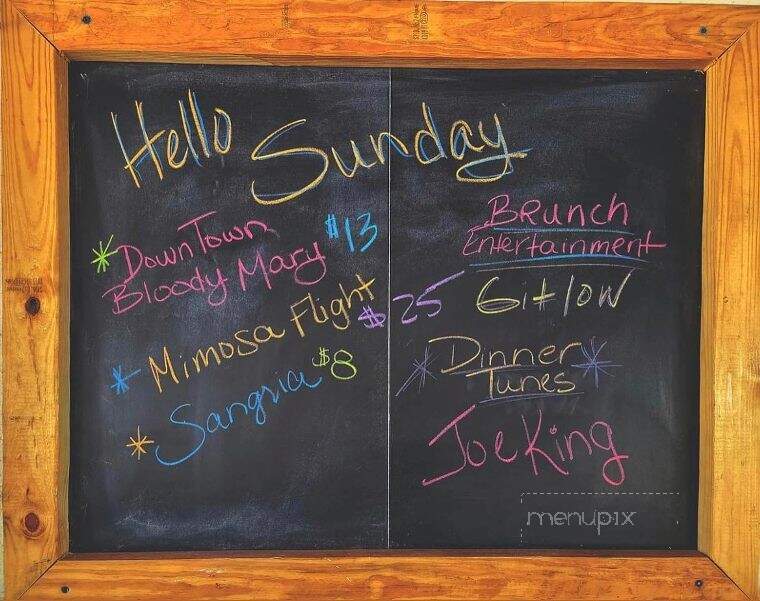 Hello Sunday
* DownTown
Bloody Mary $13
* Mimosa Flight $25
* Sangria $8
BRunch
Entertainment
Gitlow
* Dinner *
Tunes
Joe King
menupix